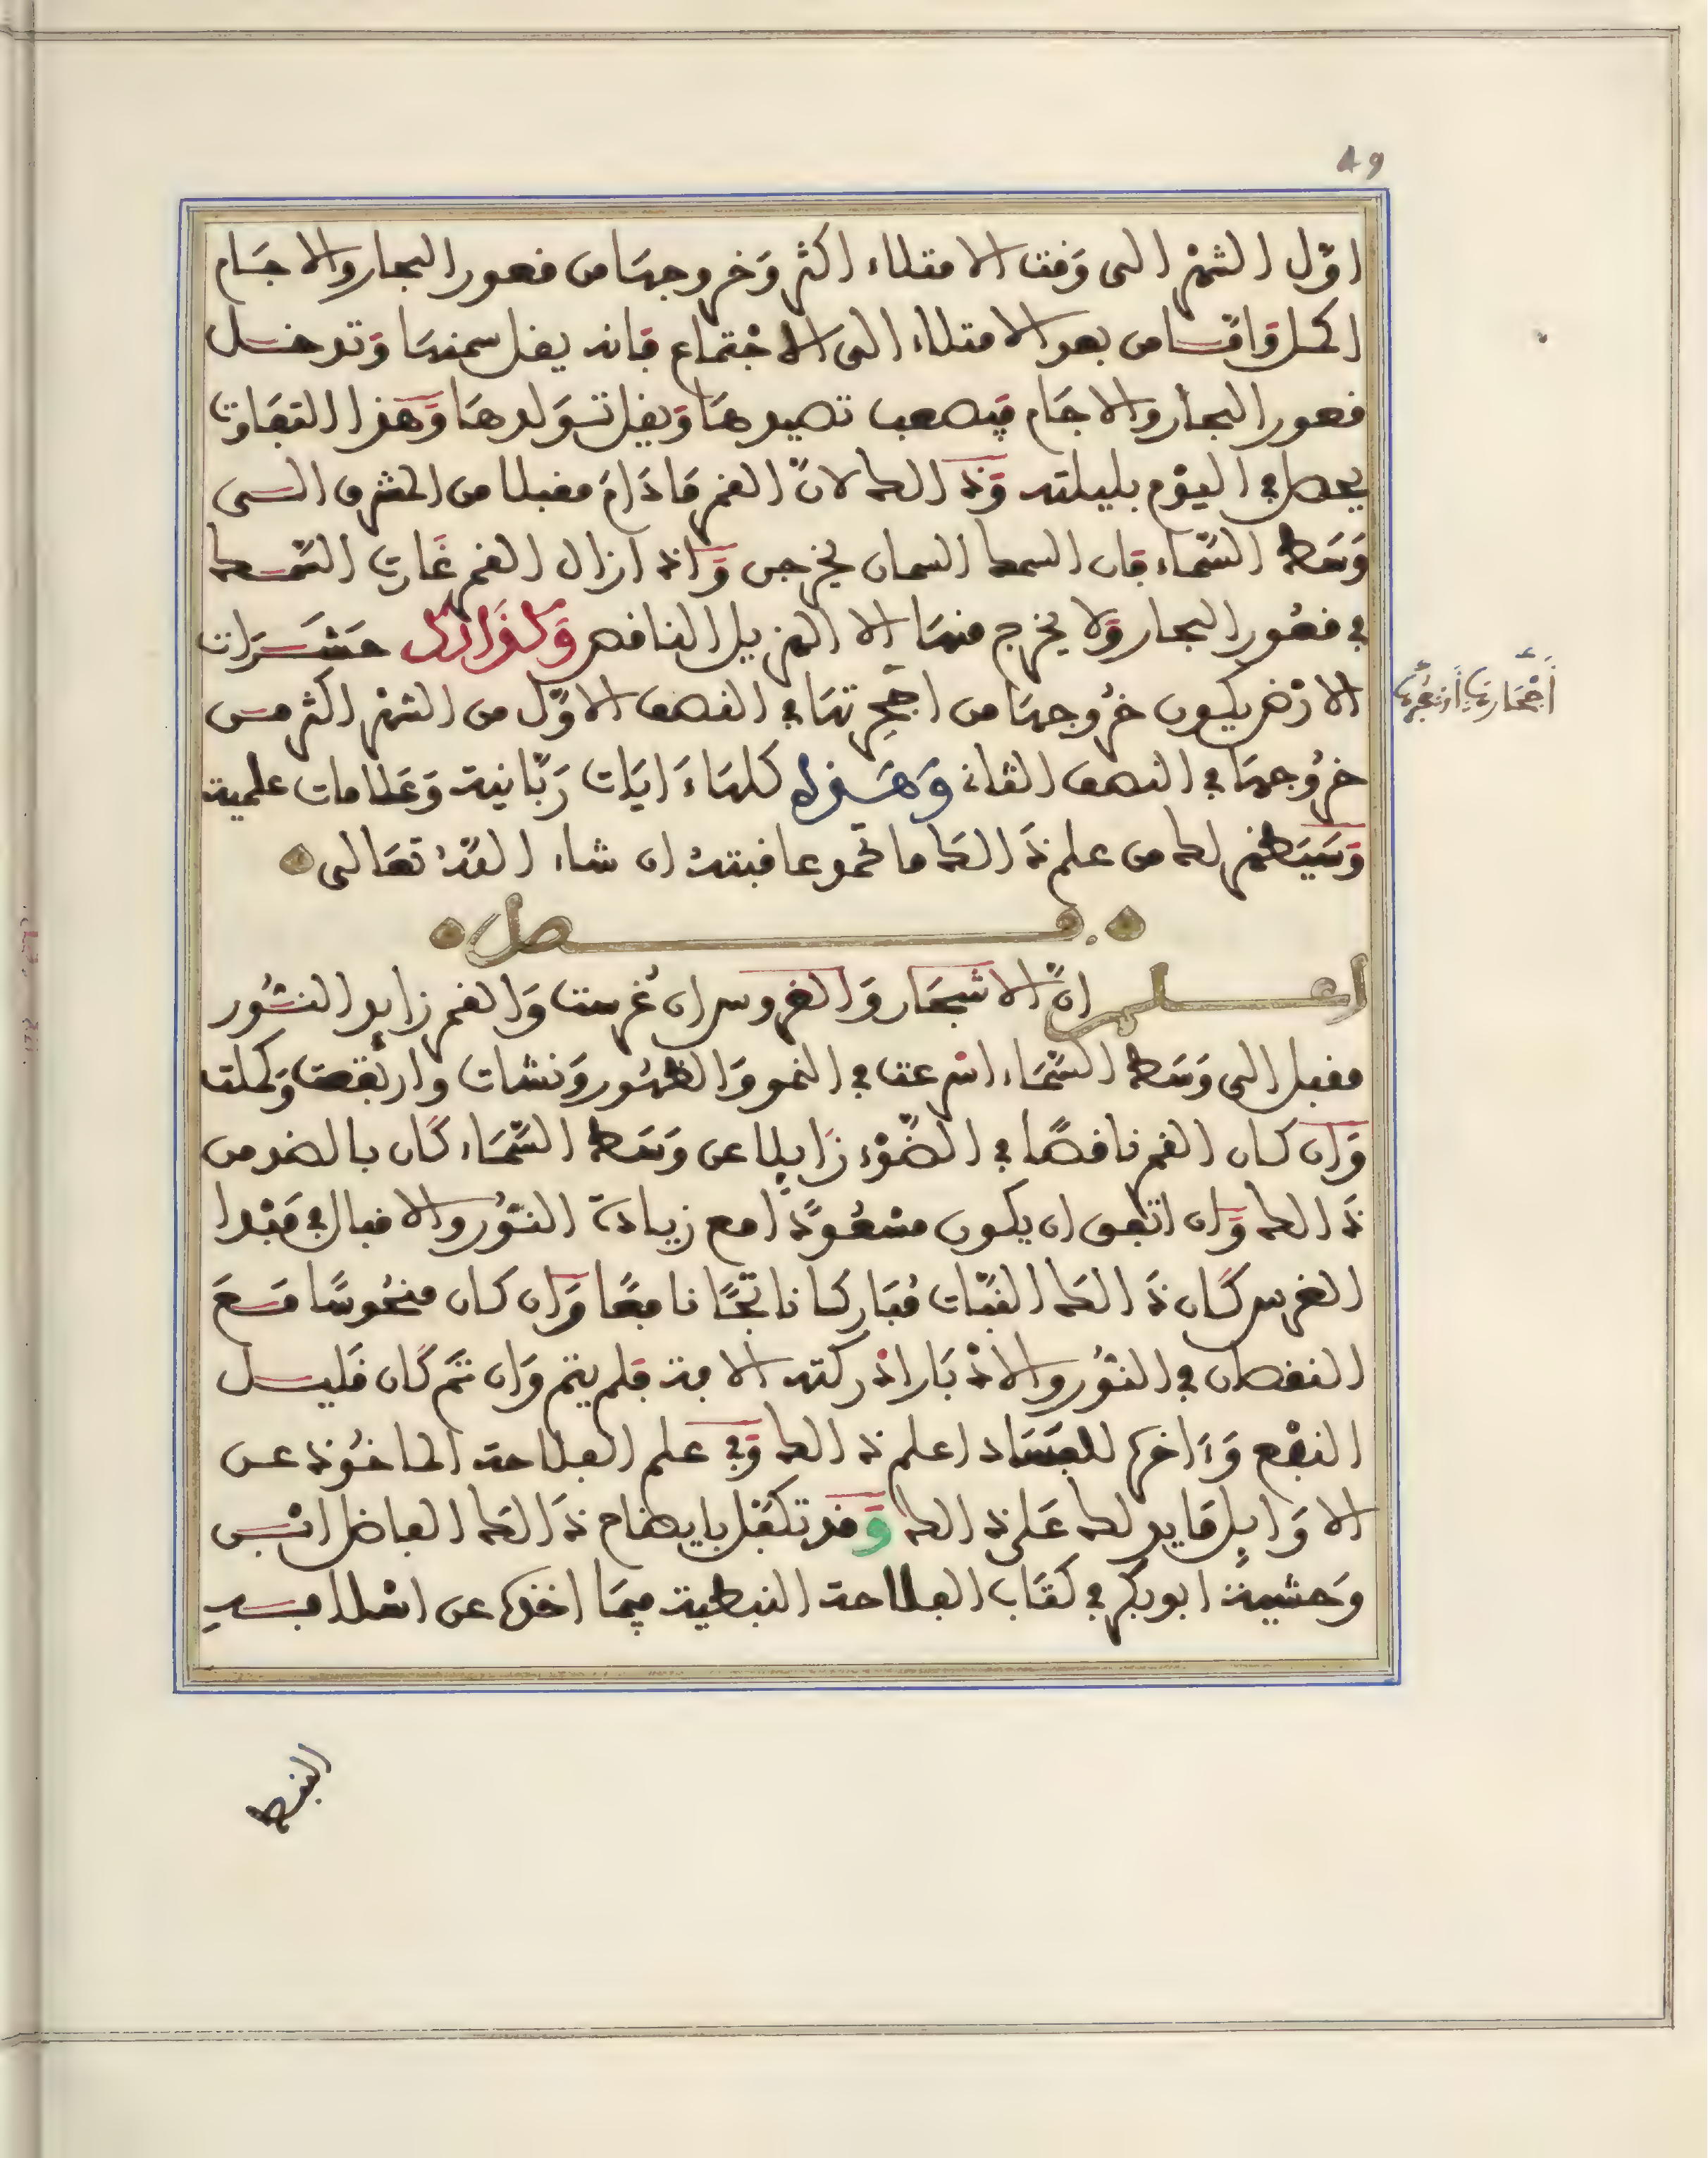 ٨٩
اوّل الشهر الى وَقت الامتلاء اكثر وَخروجهَا من قعور البحار والاجَام
اكمل وَامّا من بعد الامتلاء الى الاجْتماع فانه يقل سمنهَا وَتدخل
قعور البحار والاجَام فيصعب تصيدهَا وَيقل تَوَلدهَا وَهذا التفَاوت
يحصل في اليوْم بليلته وَذلك لانّ القمر مَا دَامَ مقبلا من المشرق الى
وَسَط السّمَاء فان السمك السمان يخرجن وَاذا زال القمر غَارت السّمك
في قعُور البحار وَلا يخرج منهَا الا الهزيل الناقص وَكذَالك حَشَرَات
الارْض يكون خرُوجهَا من اجْحِرتهَا في النصف الاوّل من الشهْر اكثر من
خرُوجهَا في النصف الثاني وَهَذه كلهَا ءَايَات رَبّانية وَعَلامات علمية
وَسَيَظهر لك من علم ذَالك ما تحمد عاقبته ان شاء اللهُ تعَالى
فصل
اعلم انّ الاشجَار وَالغروس ان غُرست وَالقمر زايد النُور
مقبل الى وَسَط السّمَاء اسْرعت في النمو وَالظهُور وَنشات وارتفعت وَكملت
وَان كان القمر ناقصًا في الضّوْء زَايلا عن وَسَط السّمَاء كَان بالضد من
ذَالك وَان اتفق ان يكون مسْعُودًا مع زيادة النّوُر والاقبال في مَبْدا
الغرس كَان ذَالك النبَات مُبَاركا ناتجًا نافعًا وَان كان منحُوسًا مَعَ
النقصان في النّوُر والادْبَار ادركته الافة فلم يتم وَان تمَ كَان قَليل
النفْع وَءَاخره للفسَاد اعلم ذلك وَفي علم الفلاحة الماخُوذ عن
الاوَايل مَا يدلك عَلى ذلك وَقد تكفّل بايضاح ذَالك الفاضل ابْن
وَحشية ابو بكر في كتَاب الفلاحة النبطية فيمَا اخذه عن اسْلافه
أَجْحَارهَا أَوْ جُحْرهَا
النبط